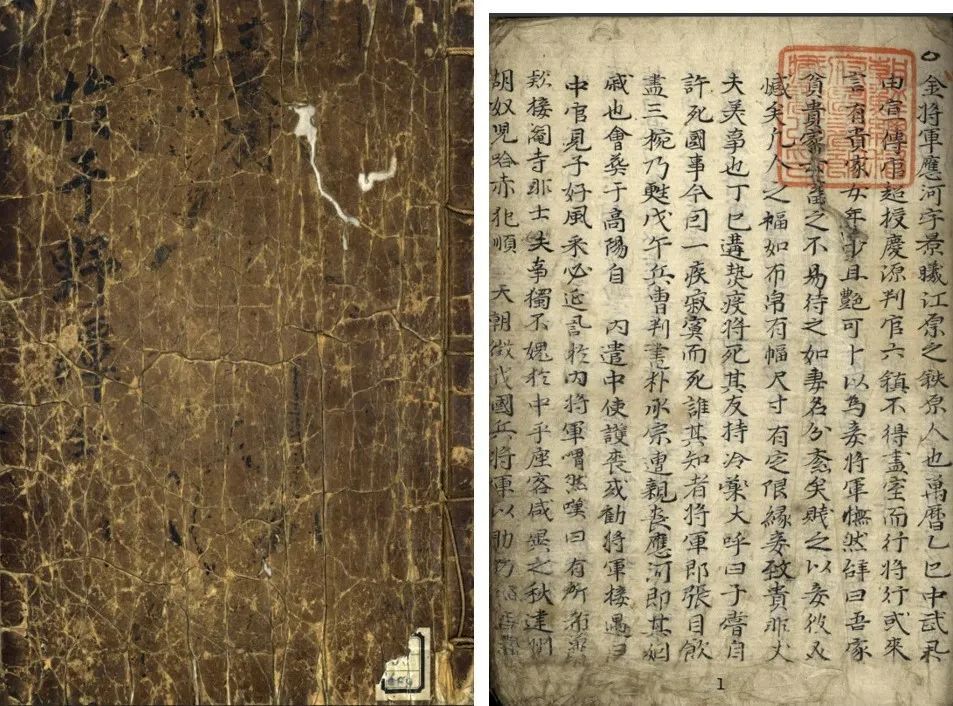 於于野譚
○金將軍應河字景曦江原之鉄原人也萬曆乙巳中武科
由宣傳官超授慶源判官六鎮不得盡室而行將行或來
言有貴家女年少且艷可卜以爲妾將軍憮然辭曰吾家
貧貴家亦畜之不易待之如妻名分紊矣賤之以妾彼必
憾矣凡人之福如布帛有幅尺寸有定限緣妾致貴非丈
夫美事也丁巳遘熱疫將死其友持冷藥大呼曰子嘗自
許死國事今曰一疾寂寞而死誰其知者將軍即張目飲
盡三椀乃甦戊午兵曹判書朴承宗遭親喪應河即其姻
戚也會葬于高陽自 內遣中使護喪或勸將軍接遇曰
中官見子好風采必延譽於內將軍喟然嘆曰有所希
欵接閹寺非士夫事獨不媿於中乎座客咸異之秋建州
胡奴兒哈赤犯順 天朝徵我國兵將軍以助防
1